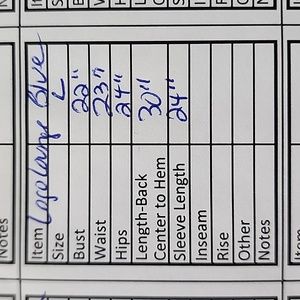 Item Logo Lounge Blue
Size L
Bust 22"
Waist 23"
Hips 24"
Length-Back
Center to Hem 30"
Sleeve Length 24"
Inseam
Rise
Other
Notes
Notes
Item